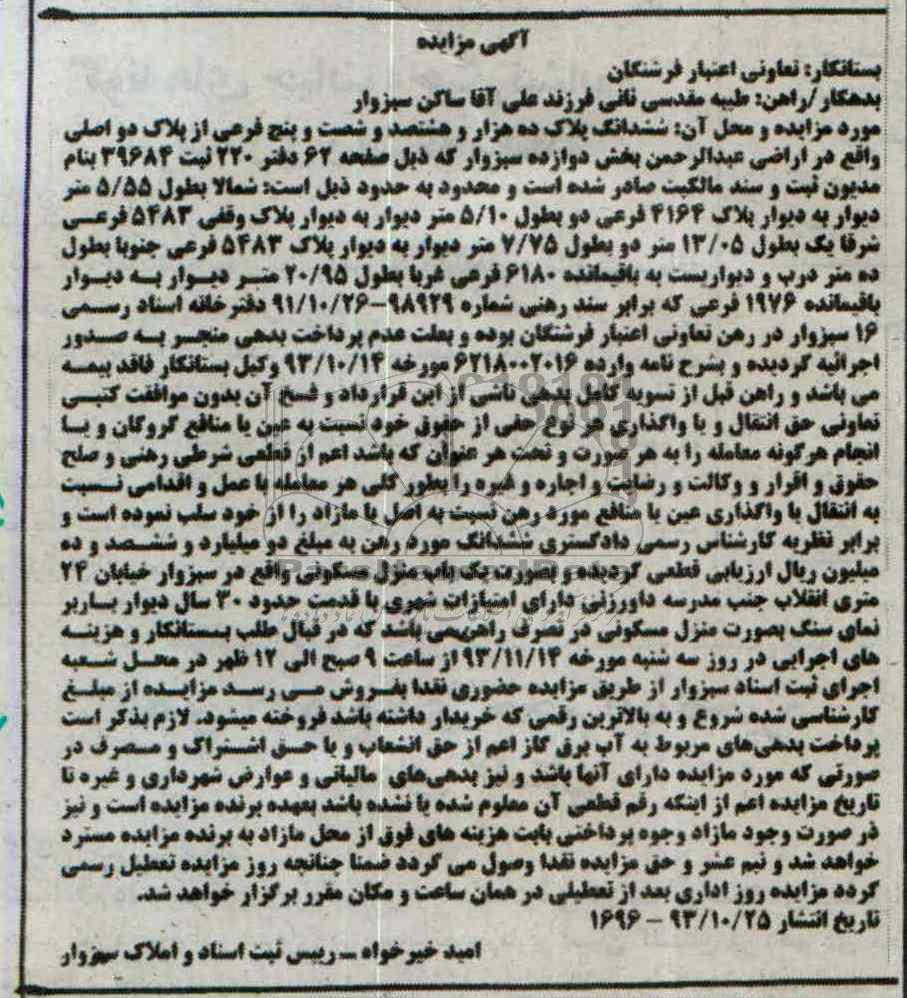 آگهی مزایده
بستانکار: تعاونی اعتبار فرشتگان
بدهکار/راهن: طیبه مقدسی ثانی فرزند علی آقا ساکن سبزوار
مورد مزایده و محل آن: ششدانگ پلاک ده هزار و هشتصد و شصت و پنج فرعی از پلاک دو اصلی
واقع در اراضی عبدالرحمن بخش دوازده سبزوار که ذیل صفحه ۶۲ دفتر ۲۲۰ ثبت ۳۹۶۸۴ بنام
مدیون ثبت و سند مالکیت صادر شده است و محدود به حدود ذیل است: شمالا بطول ۵/۵۵ متر
دیوار به دیوار پلاک ۴۱۶۴ فرعی دو بطول ۵/۱۰ متر دیوار به دیوار پلاک وقفی ۵۴۸۳ فرعی
شرقا یک بطول ۱۳/۰۵ متر دو بطول ۷/۷۵ متر دیوار به دیوار پلاک ۵۴۸۳ فرعی جنوبا بطول
ده متر درب و دیواریست به باقیمانده ۶۱۸۰ فرعی غربا بطول ۲۰/۹۵ متر دیوار به دیوار
باقیمانده ۱۹۷۶ فرعی که برابر سند رهنی شماره ۹۸۹۲۹-۹۱/۱۰/۲۶ دفترخانه اسناد رسمی
۱۶ سبزوار در رهن تعاونی اعتبار فرشتگان بوده و بعلت عدم پرداخت بدهی منجر به صدور
اجرائیه گردیده و بشرح نامه وارده ۶۲۱۸۰۰۲۰۱۶ مورخه ۹۳/۱۰/۱۴ وکیل بستانکار فاقد بیمه
می باشد و راهن قبل از تسویه کامل بدهی ناشی از این قرارداد و فسخ آن بدون موافقت کتبی
تعاونی حق انتقال و یا واگذاری هر نوع حقی از حقوق خود نسبت به عین یا منافع گروگان و یا
انجام هرگونه معامله را به هر صورت و تحت هر عنوان که باشد اعم از قطعی شرطی رهنی و صلح
حقوق و اقرار و وکالت و رضایت و اجاره و غیره را بطور کلی هر معامله یا عمل و اقدامی نسبت
به انتقال یا واگذاری عین یا منافع مورد رهن نسبت به اصل یا مازاد را از خود سلب نموده است و
برابر نظریه کارشناس رسمی دادگستری ششدانگ مورد رهن به مبلغ دو میلیارد و ششصد و ده
میلیون ریال ارزیابی قطعی گردیده و بصورت یک باب منزل مسکونی واقع در سبزوار خیابان ۲۴
متری انقلاب جنب مدرسه داورزنی دارای امتیازات شهری با قدمت حدود ۳۰ سال دیوار باربر
نمای سنگ بصورت منزل مسکونی در تصرف راهن می باشد که در قبال طلب بستانکار و هزینه
های اجرایی در روز سه شنبه مورخه ۹۳/۱۱/۱۴ از ساعت ۹ صبح الی ۱۲ ظهر در محل شعبه
اجرای ثبت اسناد سبزوار از طریق مزایده حضوری نقدا بفروش می رسد مزایده از مبلغ
کارشناسی شده شروع و به بالاترین رقمی که خریدار داشته باشد فروخته میشود. لازم بذکر است
پرداخت بدهی‌های مربوط به آب برق گاز اعم از حق انشعاب و یا حق اشتراک و مصرف در
صورتی که مورد مزایده دارای آنها باشد و نیز بدهی‌های مالیاتی و عوارض شهرداری و غیره تا
تاریخ مزایده اعم از اینکه رقم قطعی آن معلوم شده یا نشده باشد بعهده برنده مزایده است و نیز
در صورت وجود مازاد وجوه پرداختی بابت هزینه های فوق از محل مازاد به برنده مزایده مسترد
خواهد شد و نیم عشر و حق مزایده نقدا وصول می گردد ضمنا چنانچه روز مزایده تعطیل رسمی
گردد مزایده روز اداری بعد از تعطیلی در همان ساعت و مکان مقرر برگزار خواهد شد.
تاریخ انتشار ۹۳/۱۰/۲۵ – ۱۶۹۶
امید خیرخواه – رییس ثبت اسناد و املاک سبزوار